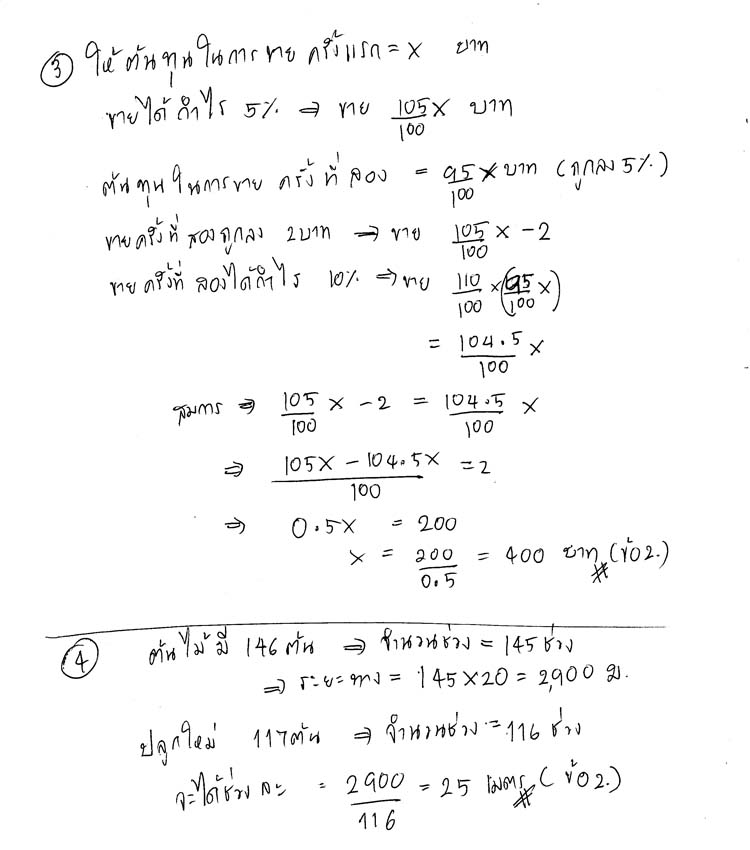 ③ ให้ต้นทุนในการขาย ครั้งแรก = x บาท
ขายได้กำไร 5% ⇒ ขาย 105/100 x บาท
ต้นทุนในการขาย ครั้งที่สอง = 95/100 x บาท (ถูกลง 5%)
ขายครั้งที่สองถูกลง 2 บาท ⇒ ขาย 105/100 x - 2
ขายครั้งที่สองได้กำไร 10% ⇒ ขาย 110/100 × (95/100 x)
= 104.5/100 x
สมการ ⇒ 105/100 x - 2 = 104.5/100 x
⇒ (105x - 104.5x)/100 = 2
⇒ 0.5x = 200
x = 200/0.5 = 400 บาท # (ข้อ 2.)
④ ต้นไม้มี 146 ต้น ⇒ จำนวนช่วง = 145 ช่วง
⇒ ระยะทาง = 145 × 20 = 2,900 ม.
ปลูกใหม่ 117 ต้น ⇒ จำนวนช่วง = 116 ช่วง
จะได้ช่วงละ = 2900/116 = 25 เมตร # (ข้อ 2.)